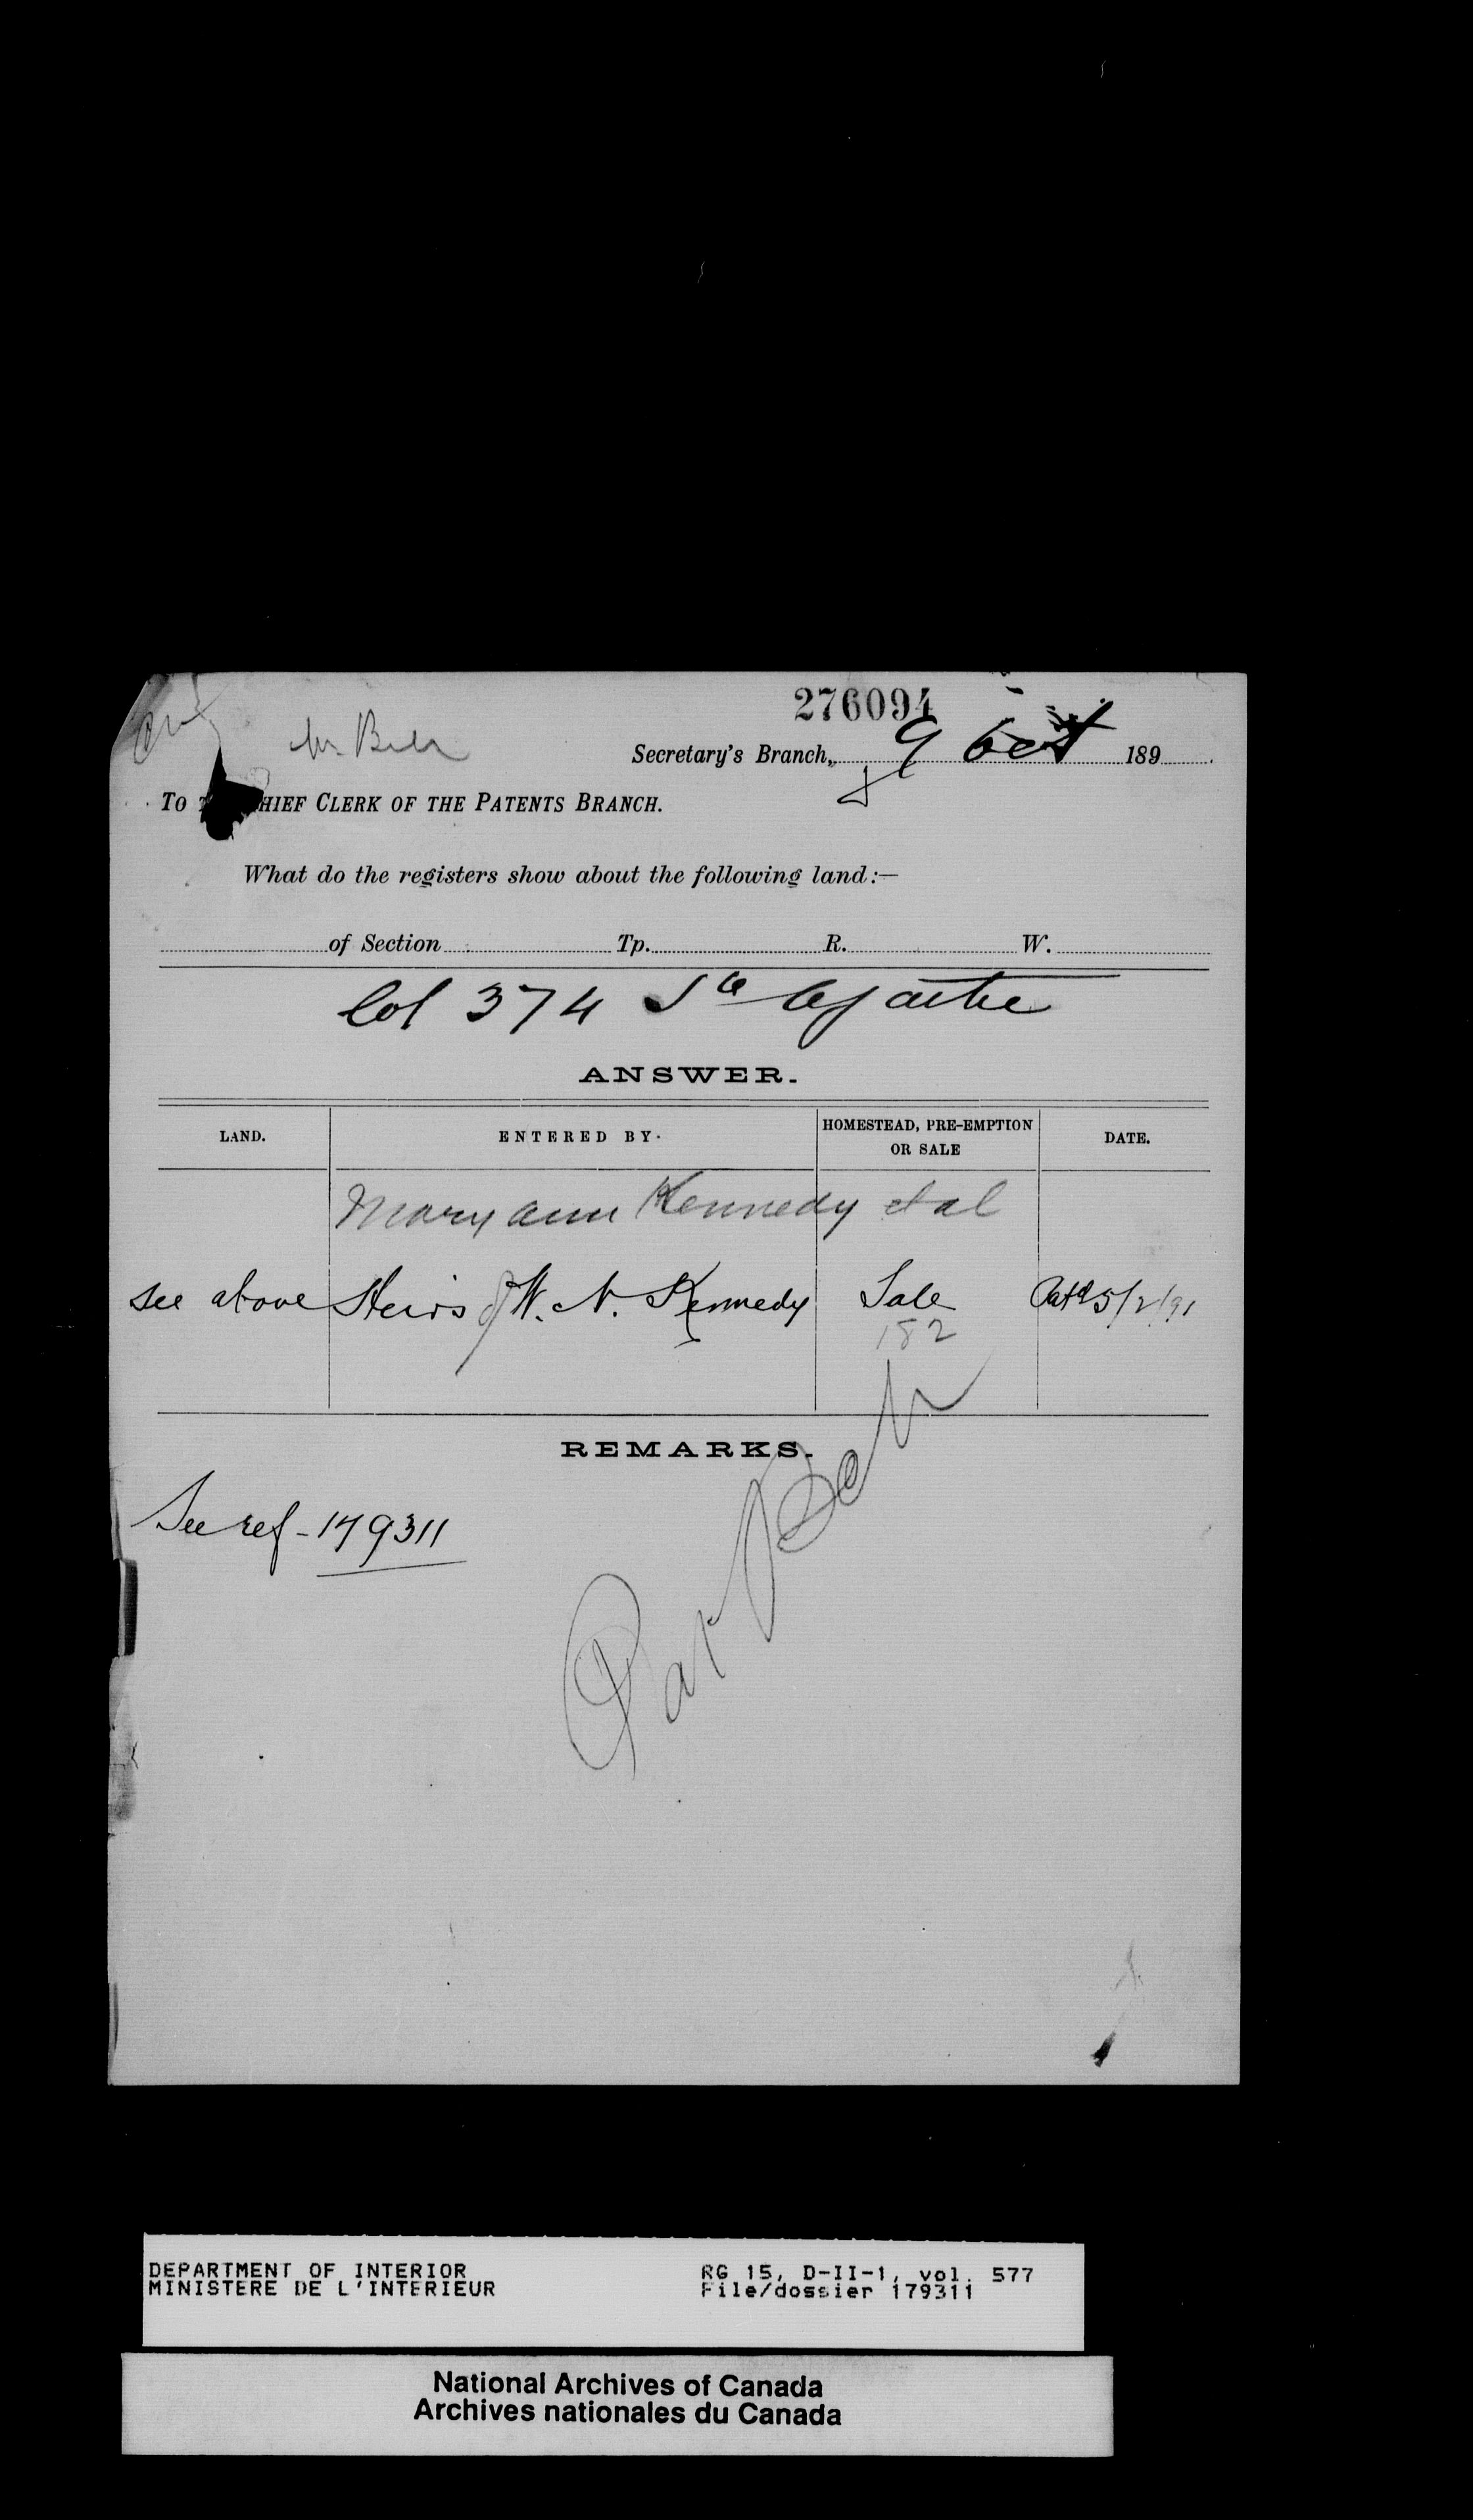 276094
Mr Bell
Secretary's Branch, 9 Oct 189
TO CHIEF CLERK OF THE PATENTS BRANCH.
What do the registers show about the following land:—
of Section Tp. R. W.
Lot 374 Ste Agathe
ANSWER.
LAND. ENTERED BY. HOMESTEAD, PRE-EMPTION OR SALE DATE.
Mary Ann Kennedy et al
See above Heirs of W. N. Kennedy Sale Patd 5/2/91
182
REMARKS.
See ref - 179311
DEPARTMENT OF INTERIOR RG 15, D-II-1, vol. 577
MINISTERE DE L'INTERIEUR File/dossier 179311
National Archives of Canada
Archives nationales du Canada